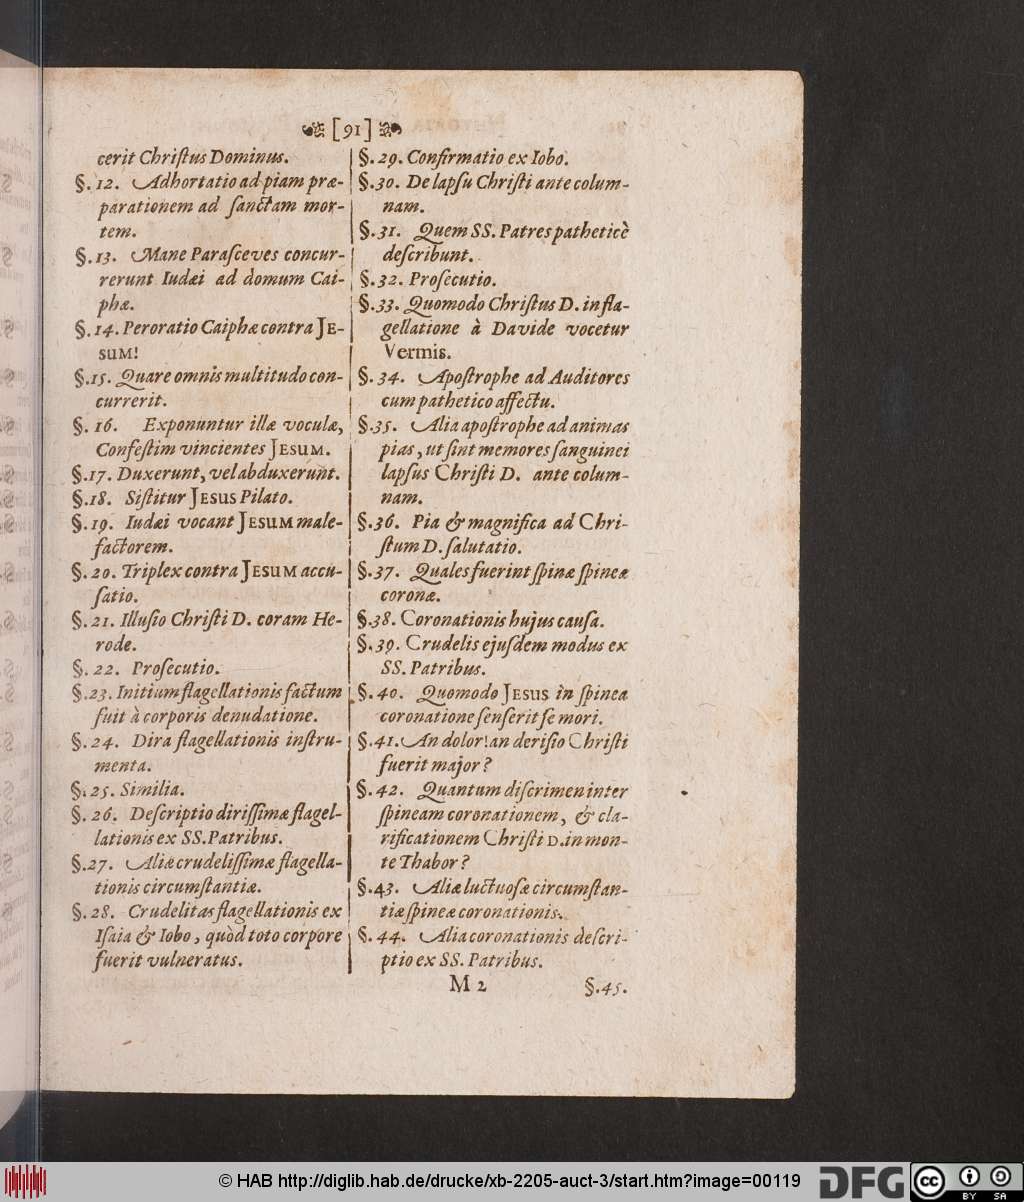 [91]
cerit Chriſtus Dominus.
§. 12. Adhortatio ad piam præ-
parationem ad ſanctam mor-
tem.
§. 13. Mane Paraſceves concur-
rerunt Iudæi ad domum Cai-
phæ.
§. 14. Peroratio Caiphæ contra JE-
SUM!
§. 15. Quare omnis multitudo con-
currerit.
§. 16. Exponuntur illæ voculæ,
Confeſtim vincientes JESUM.
§. 17. Duxerunt, vel abduxerunt.
§. 18. Siſtitur JESUS Pilato.
§. 19. Iudæi vocant JESUM male-
factorem.
§. 20. Triplex contra JESUM accu-
ſatio.
§. 21. Illuſio Chriſti D. coram He-
rode.
§. 22. Proſecutio.
§. 23. Initium flagellationis factum
fuit à corporis denudatione.
§. 24. Dira flagellationis inſtru-
menta.
§. 25. Similia.
§. 26. Deſcriptio diriſſimæ flagel-
lationis ex SS. Patribus.
§. 27. Aliæ crudeliſſimæ flagella-
tionis circumſtantiæ.
§. 28. Crudelitas flagellationis ex
Iſaia & Iobo, quòd toto corpore
fuerit vulneratus.
§. 29. Confirmatio ex Iobo.
§. 30. De lapſu Chriſti ante colum-
nam.
§. 31. Quem SS. Patres patheticè
deſcribunt.
§. 32. Proſecutio.
§. 33. Quomodo Chriſtus D. in fla-
gellatione à Davide vocetur
Vermis.
§. 34. Apoſtrophe ad Auditores
cum pathetico affectu.
§. 35. Alia apoſtrophe ad animas
pias, ut ſint memores ſanguinei
lapſus Chriſti D. ante colum-
nam.
§. 36. Pia & magnifica ad Chri-
ſtum D. ſalutatio.
§. 37. Quales fuerint ſpinæ ſpineæ
coronæ.
§. 38. Coronationis hujus cauſa.
§. 39. Crudelis ejuſdem modus ex
SS. Patribus.
§. 40. Quomodo JESUS in ſpinea
coronatione ſenſerit ſe mori.
§. 41. An dolor! an deriſio Chriſti
fuerit major?
§. 42. Quantum diſcrimen inter
ſpineam coronationem, & cla-
rificationem Chriſti D. in mon-
te Thabor?
§. 43. Aliæ luctuoſæ circumſtan-
tiæ ſpineæ coronationis.
§. 44. Alia coronationis deſcri-
ptio ex SS. Patribus.
M 2 §. 45.
© HAB http://diglib.hab.de/drucke/xb-2205-auct-3/start.htm?image=00119
DFG
cc BY SA